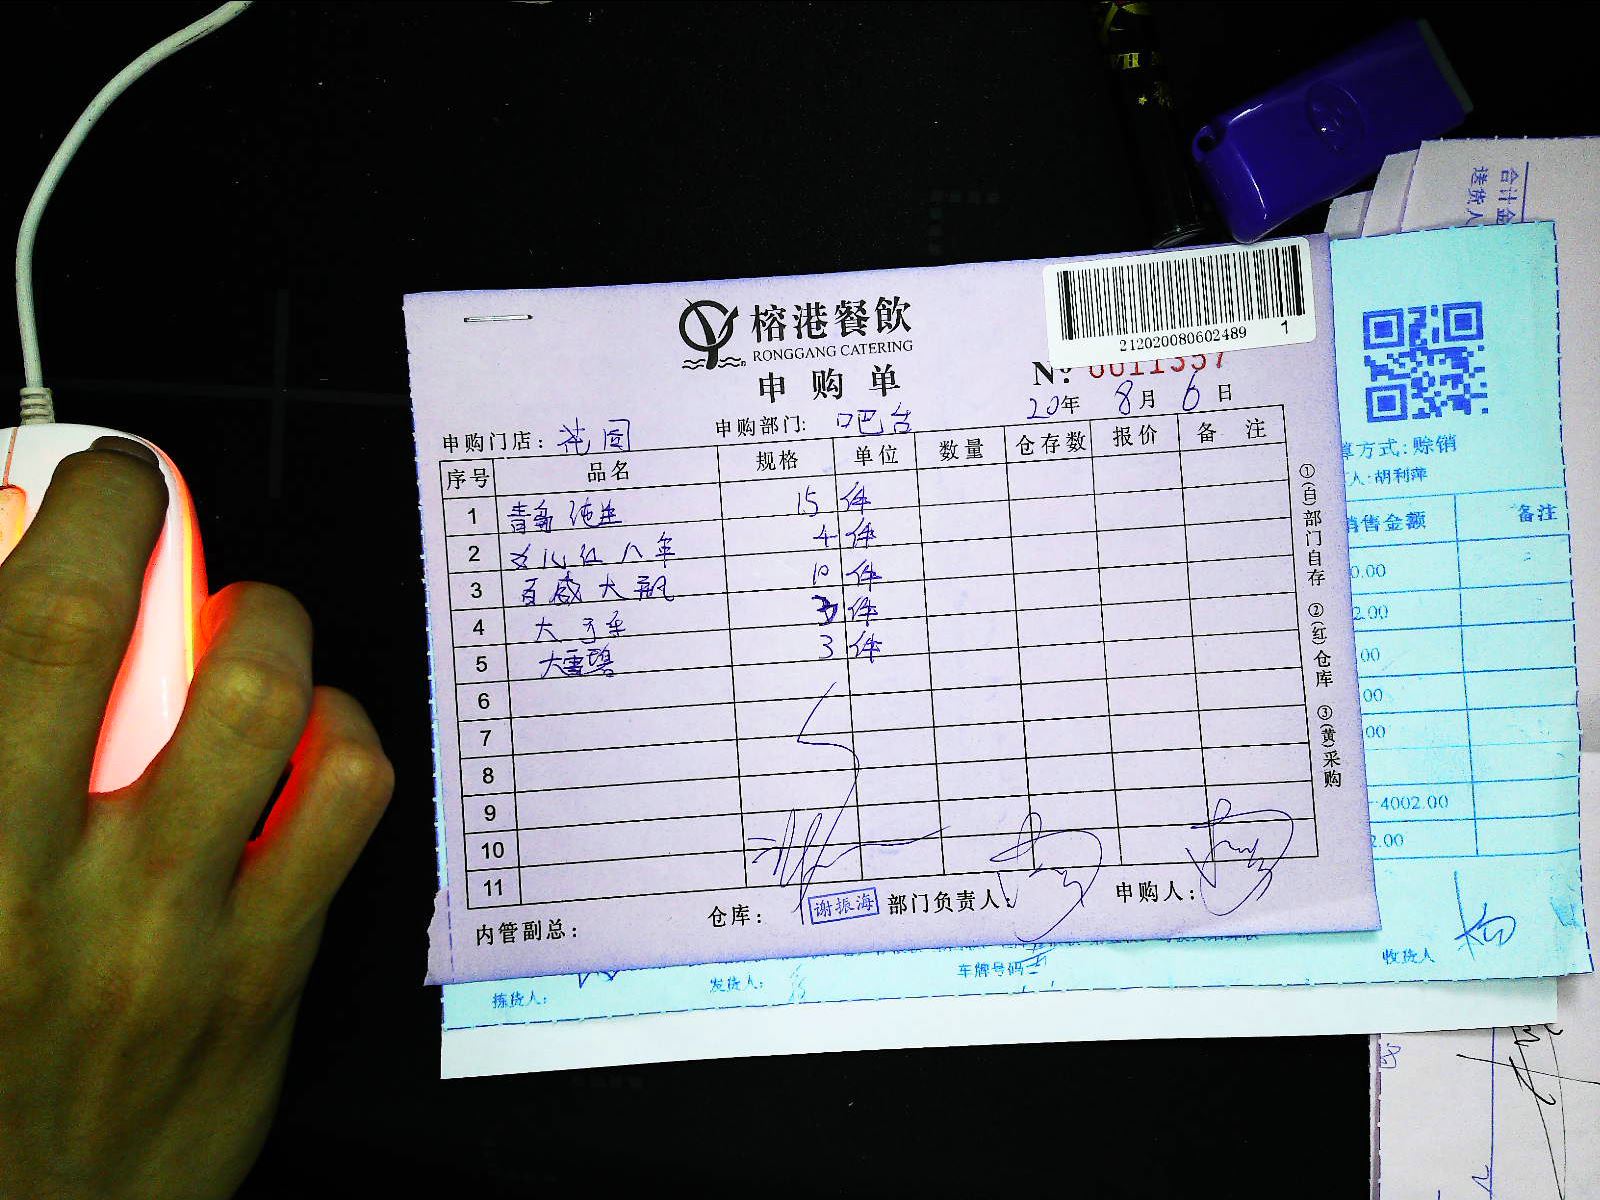 榕港餐飲
RONGGANG CATERING
申购单
212020080602489 1
Nº: 0011357
20年 8月 6日
申购门店: 花园 申购部门: 吧台
序号 品名 规格 单位 数量 仓存数 报价 备注
1 青岛纯生 15 件
2 女儿红八年 4 件
3 百威大瓶 10 件
4 大 3 件
5 大雪碧 3 件
6
7
8
9
10
11
内管副总: 仓库: 谢振海 部门负责人: 申购人:
①(白)部门自存 ②(红)仓库 ③(黄)采购
合计金
送货人
算方式: 赊销
人: 胡利萍
销售金额 备注
0.00
2.00
00
00
00
4002.00
2.00
拣货人: 发货人: 车牌号码 收货人